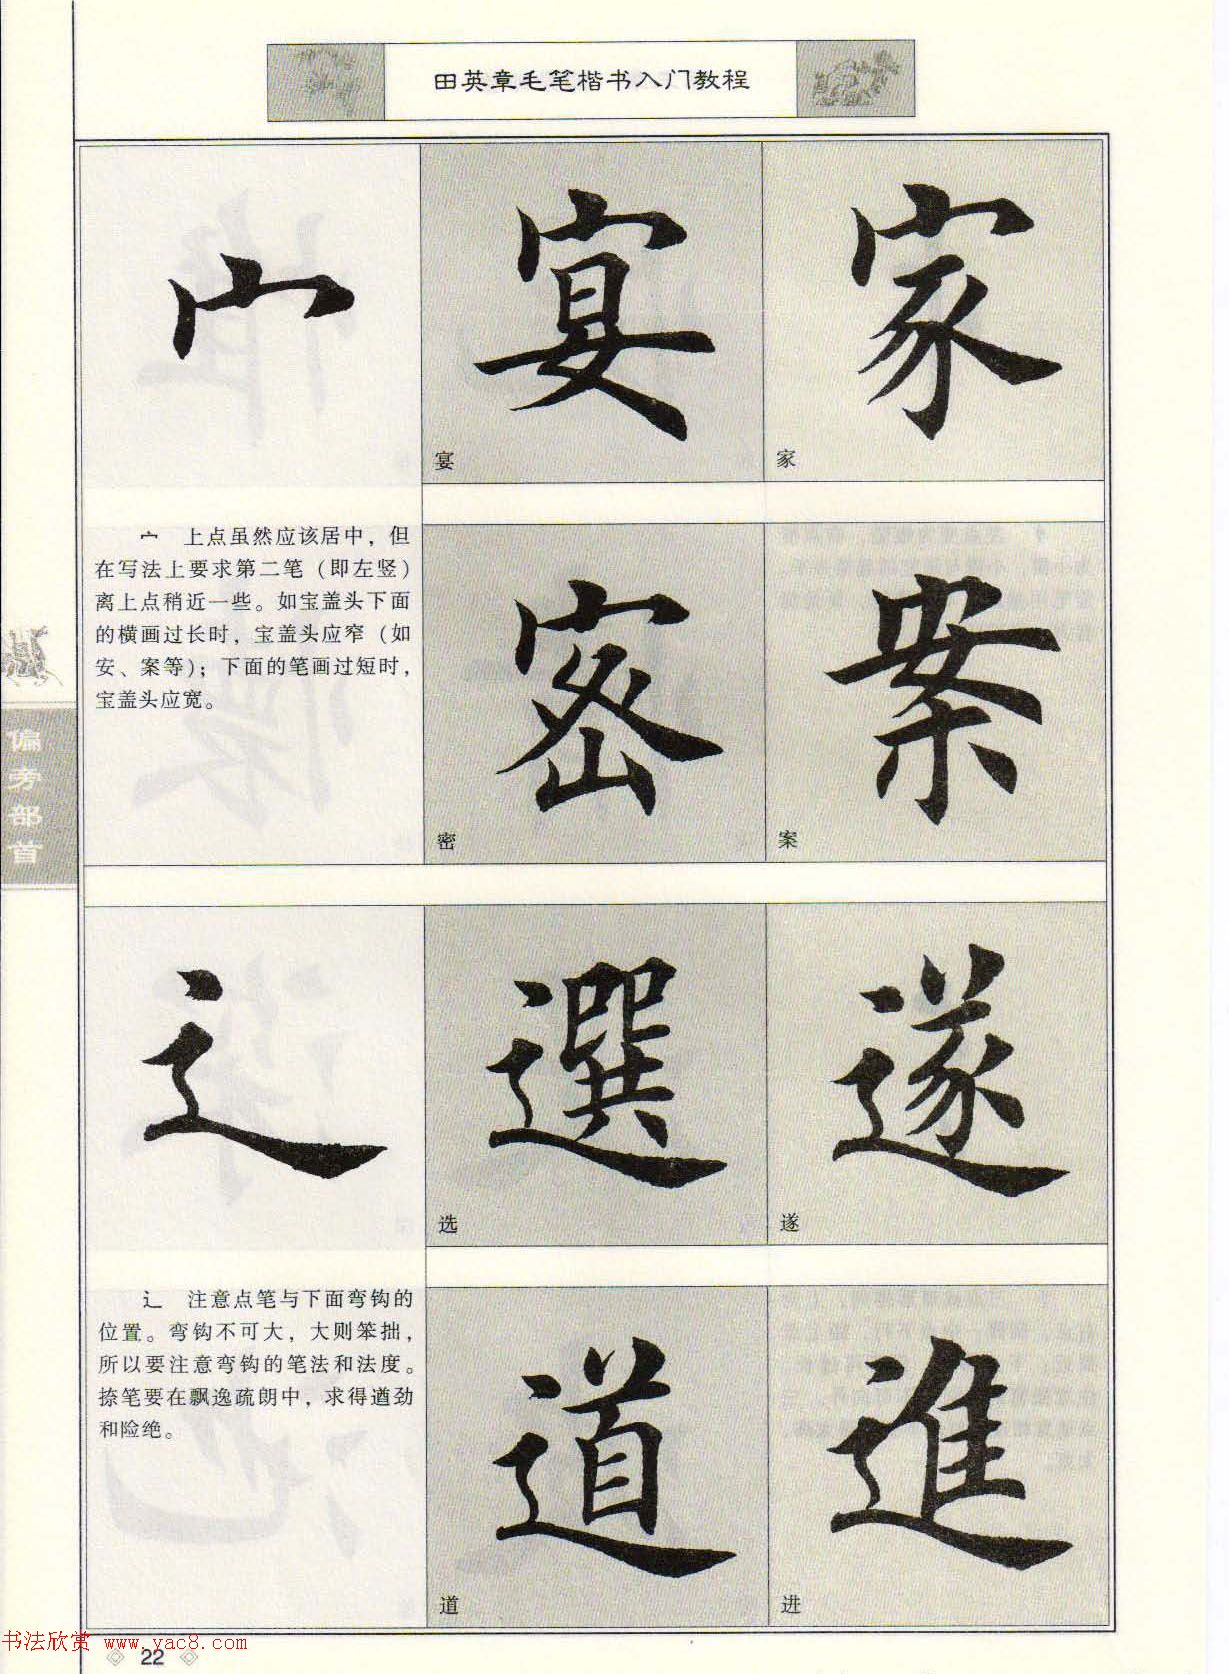 田英章毛笔楷书入门教程
宀
宴
家
宴
家
宀 上点虽然应该居中，但
在写法上要求第二笔（即左竖）
离上点稍近一些。如宝盖头下面
的横画过长时，宝盖头应窄（如
安、案等）；下面的笔画过短时，
宝盖头应宽。
密
案
密
案
偏旁部首
辶
選
遂
选
遂
辶 注意点笔与下面弯钩的
位置。弯钩不可大，大则笨拙，
所以要注意弯钩的笔法和法度。
捺笔要在飘逸疏朗中，求得遒劲
和险绝。
道
進
道
进
书法欣赏 www.yac8.com
22